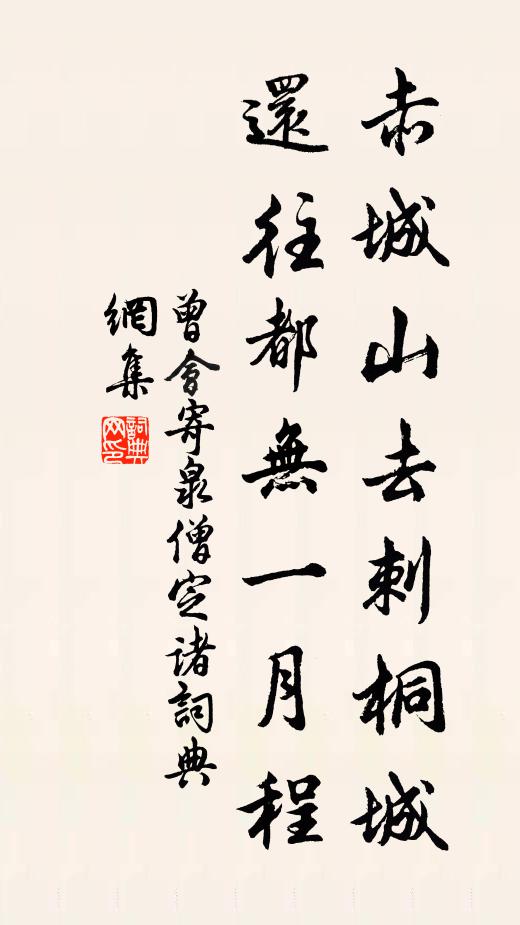 赤城山去刺桐城
還往都無一月程
曾會寄泉僧定諸詞典
網集
詞典
网印